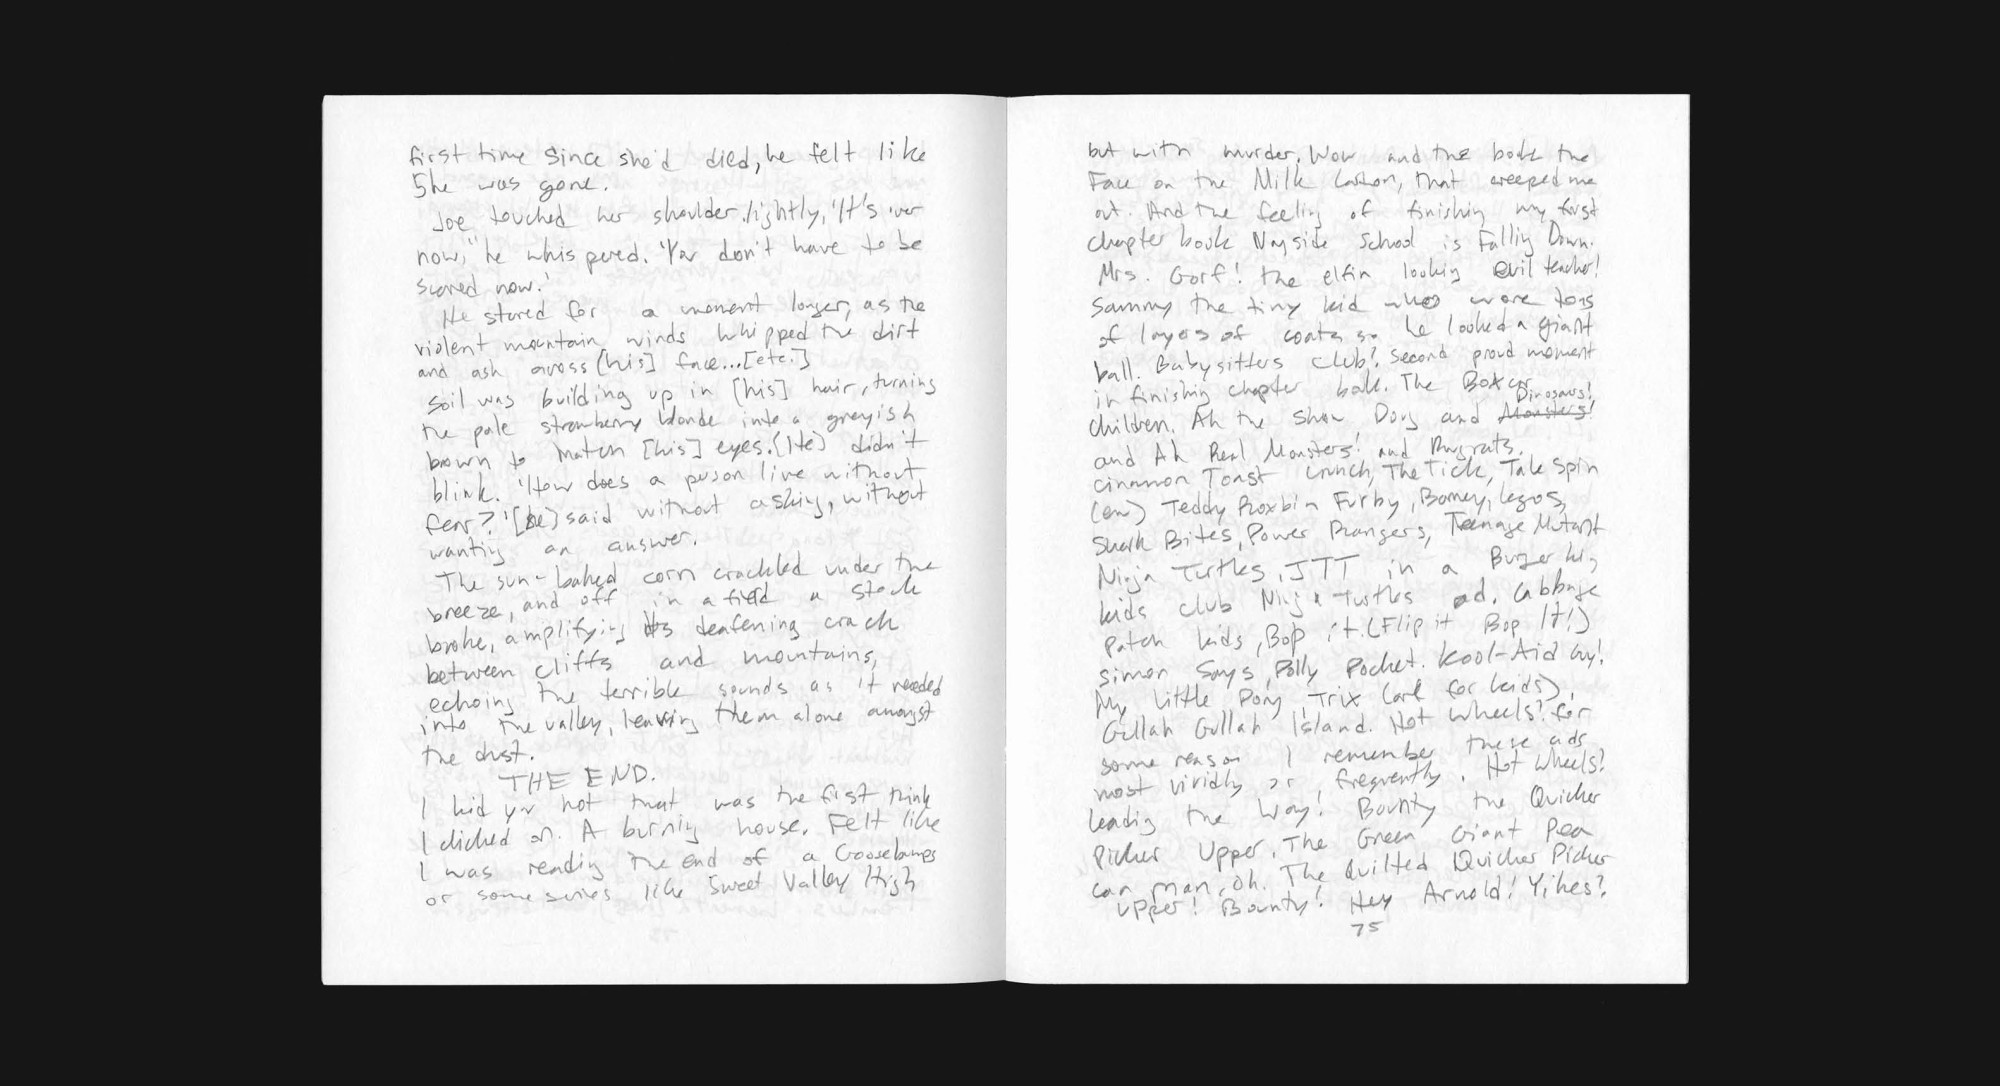 first time since she'd died, he felt like
she was gone.
Joe touched her shoulder lightly, "It's over
now," he whispered. "You don't have to be
scared now."
He stared for a moment longer, as the
violent mountain winds whipped the dirt
and ash across [his] face...[etc.]
Soil was building up in [his] hair, turning
the pale strawberry blonde into a greyish
brown to match [his] eyes. [He] didn't
blink. "How does a person live without
fear?" [he] said without asking, without
wanting an answer.
The sun-baked corn crackled under the
breeze, and off in a field a stock
broke, amplifying its deafening crack
between cliffs and mountains,
echoing the terrible sounds as it receded
into the valley, leaving them alone amongst
the dust.
THE END.
I kid you not that was the first think
I clicked on. A burning house. Felt like
I was reading the end of a Goosebumps
or some series like Sweet Valley High
but with murder. Wow and the book the
Face on the Milk Carton, that creeped me
out. And the feeling of finishing my first
chapter book Wayside School is Falling Down.
Mrs. Gorf! the elfin looking evil teacher!
Sammy the tiny kid who wore tons
of layers of coats so he looked a giant
ball. Babysitters Club? Second proud moment
in finishing chapter book. The Boxcar
children. Ah the show Doug and Monsters! Dinosaurs!
and Ah Real Monsters! and Rugrats.
cinnamon Toast Crunch, The Tick, Tale Spin
(ew) Teddy Ruxbin Furby, Barney, legos,
Shark Bites, Power Rangers, Teenage Mutant
Ninja Turtles, JTT in a Burger King
kids club Ninja Turtles ad. Cabbage
patch kids, Bop it. (Flip it Bop It!)
simon Says, Polly Pocket. Kool-Aid Guy!
My Little Pony, Trix (are for kids),
Gullah Gullah Island. Hot Wheels? for
some reason I remember these ads
most vividly or, frequently. Hot Wheels?
leading the Way! Bounty the Quicker
Picker Upper. The Green Giant Pea
can man, oh. The Quilted Quicker Picker
Upper! Bounty! Hey Arnold! Yikes?
75